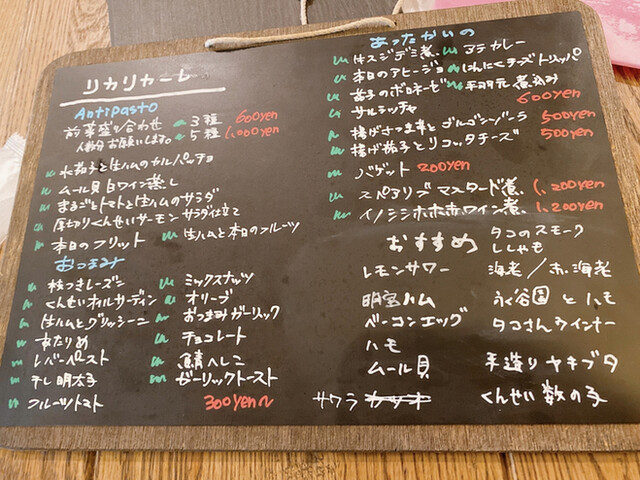 リカリカーレ
Antipasto
前菜盛り合わせ 3種 600yen
人数分お願いします。 5種 1,000yen
水茄子と生ハムのカルパッチョ
ムール貝白ワイン蒸し
まるごとトマトと生ハムのサラダ
厚切りくんせいサーモン サラダ仕立て
本日のフリット 生ハムと本日のフルーツ
おつまみ
枝つきレーズン ミックスナッツ
くんせいオイルサーディン オリーブ
生ハムとグリッシーニ おつまみガーリック
あたりめ チョコレート
レバーペースト 鯖へしこ
干し明太子 ガーリックトースト
フルーツトマト 300yen〜
あったかいの
牛スジデミ煮 アテカレー
本日のアヒージョ にんにくチーズトリッパ
茄子のボロネーゼ 手羽元煮込み
サルティッチャ 600yen
揚げさつま芋とゴルゴンゾーラ 500yen
揚げ茄子とリコッタチーズ 500yen
バゲット 200yen
スペアリブマスタード煮 1,200yen
イノシシホホホホワイン煮 1,200yen
おすすめ タコのスモーク
ししゃも
レモンサワー 海老/赤海老
明宝ハム 永谷園とハモ
ベーコンエッグ タコさんウインナー
ハモ
ムール貝 手造りヤキブタ
サワラ カツオ くんせい数の子